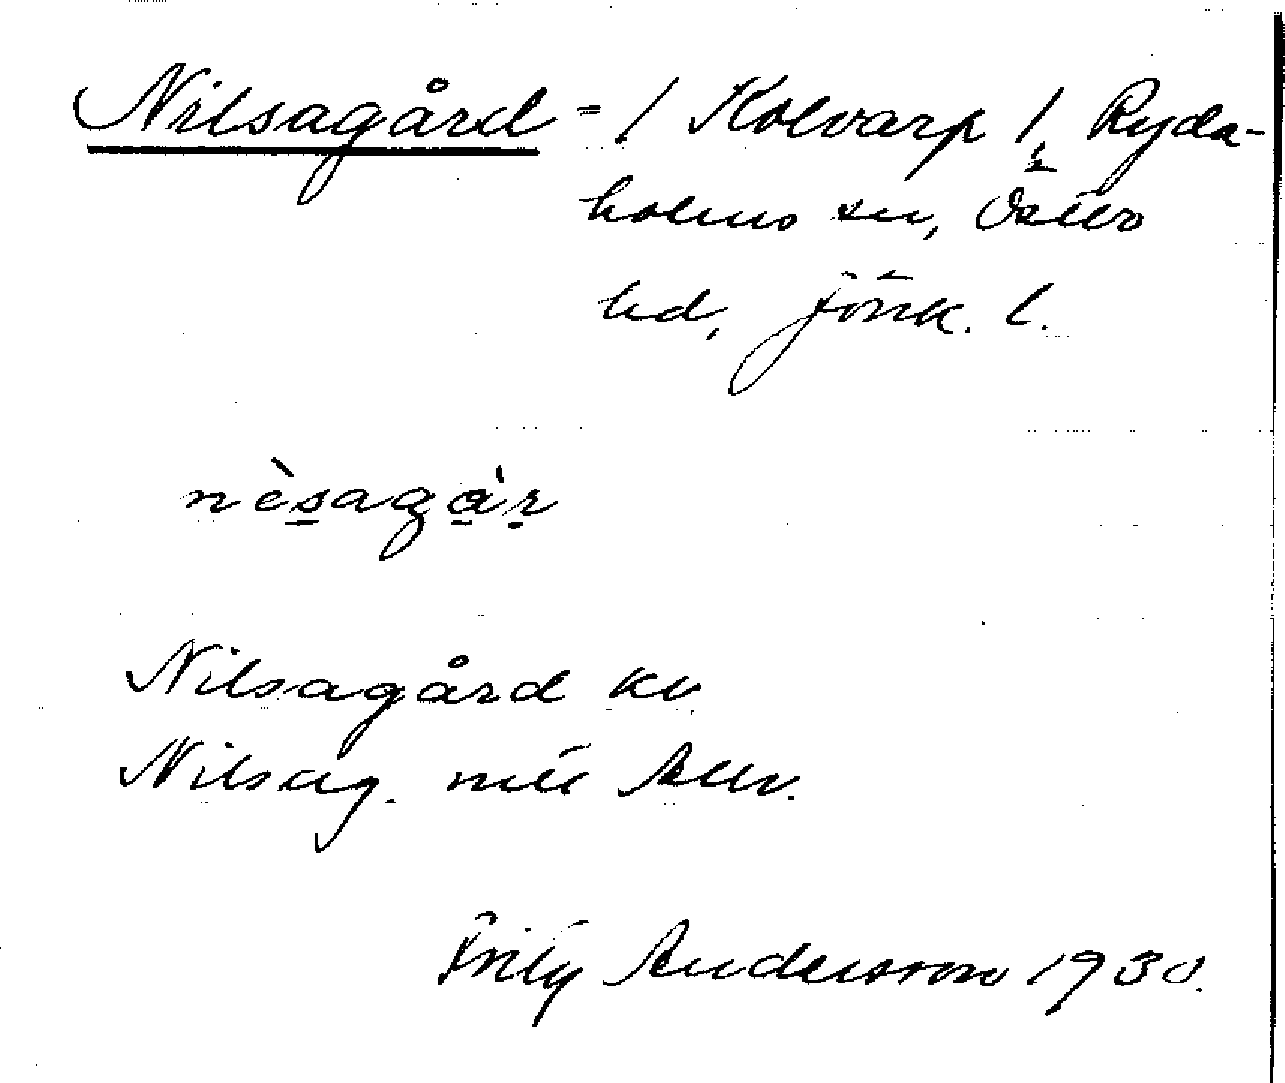 Nilsagård = / Kolvarp /, Ryda-
holms sn, Östbo
hd, Jönk. l.
nèsagàr
Nilsagård kv.
Nilsag.
Fritz Andersson 1930.